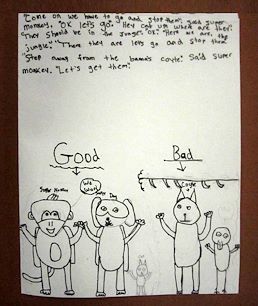 "Come on we have to go and stop them", said super
monkey. "OK let's go." "Hey get up! where are they?
"They should be in the jungle. OK! "Here we are, the
jungle." "There they are lets go and stop them"
"Step away from the banana's coyte! Said super
monkey. "Let's get them!
Good
Bad
Super Monkey
Dog
Coyte